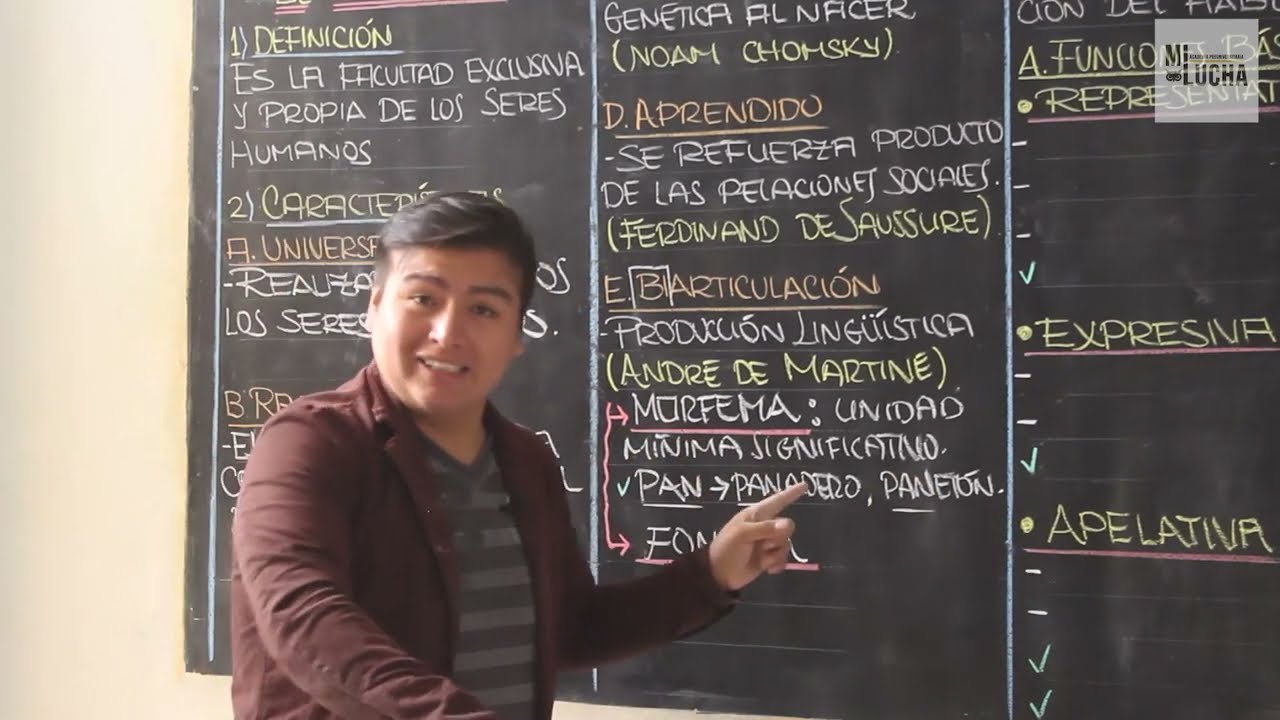 DE
1) DEFINICIÓN
ES LA FACULTAD EXCLUSIVA
Y PROPIA DE LOS SERES
HUMANOS
2) CARACTERÍ
A. UNIVERSA
-REALIZA OS
LOS SERES S.
B RE
-EL A
GENÉTICA AL NACER
(NOAM CHOMSKY).
D. APRENDIDO
-SE REFUERZA PRODUCTO
DE LAS RELACIONES SOCIALES.
(FERDINAND DE SAUSSURE)
E. BIARTICULACIÓN
-PRODUCCIÓN LINGÜÍSTICA
(ANDRE DE MARTINE)
MORFEMA: UNIDAD
MÍNIMA SIGNIFICATIVO.
PAN → PANADERO, PANETÓN.
FON A
CION DEL HABL
A. FUNCIONES BÁS
• REPRESENTAT
• EXPRESIVA
• APELATIVA
MI
LUCHA